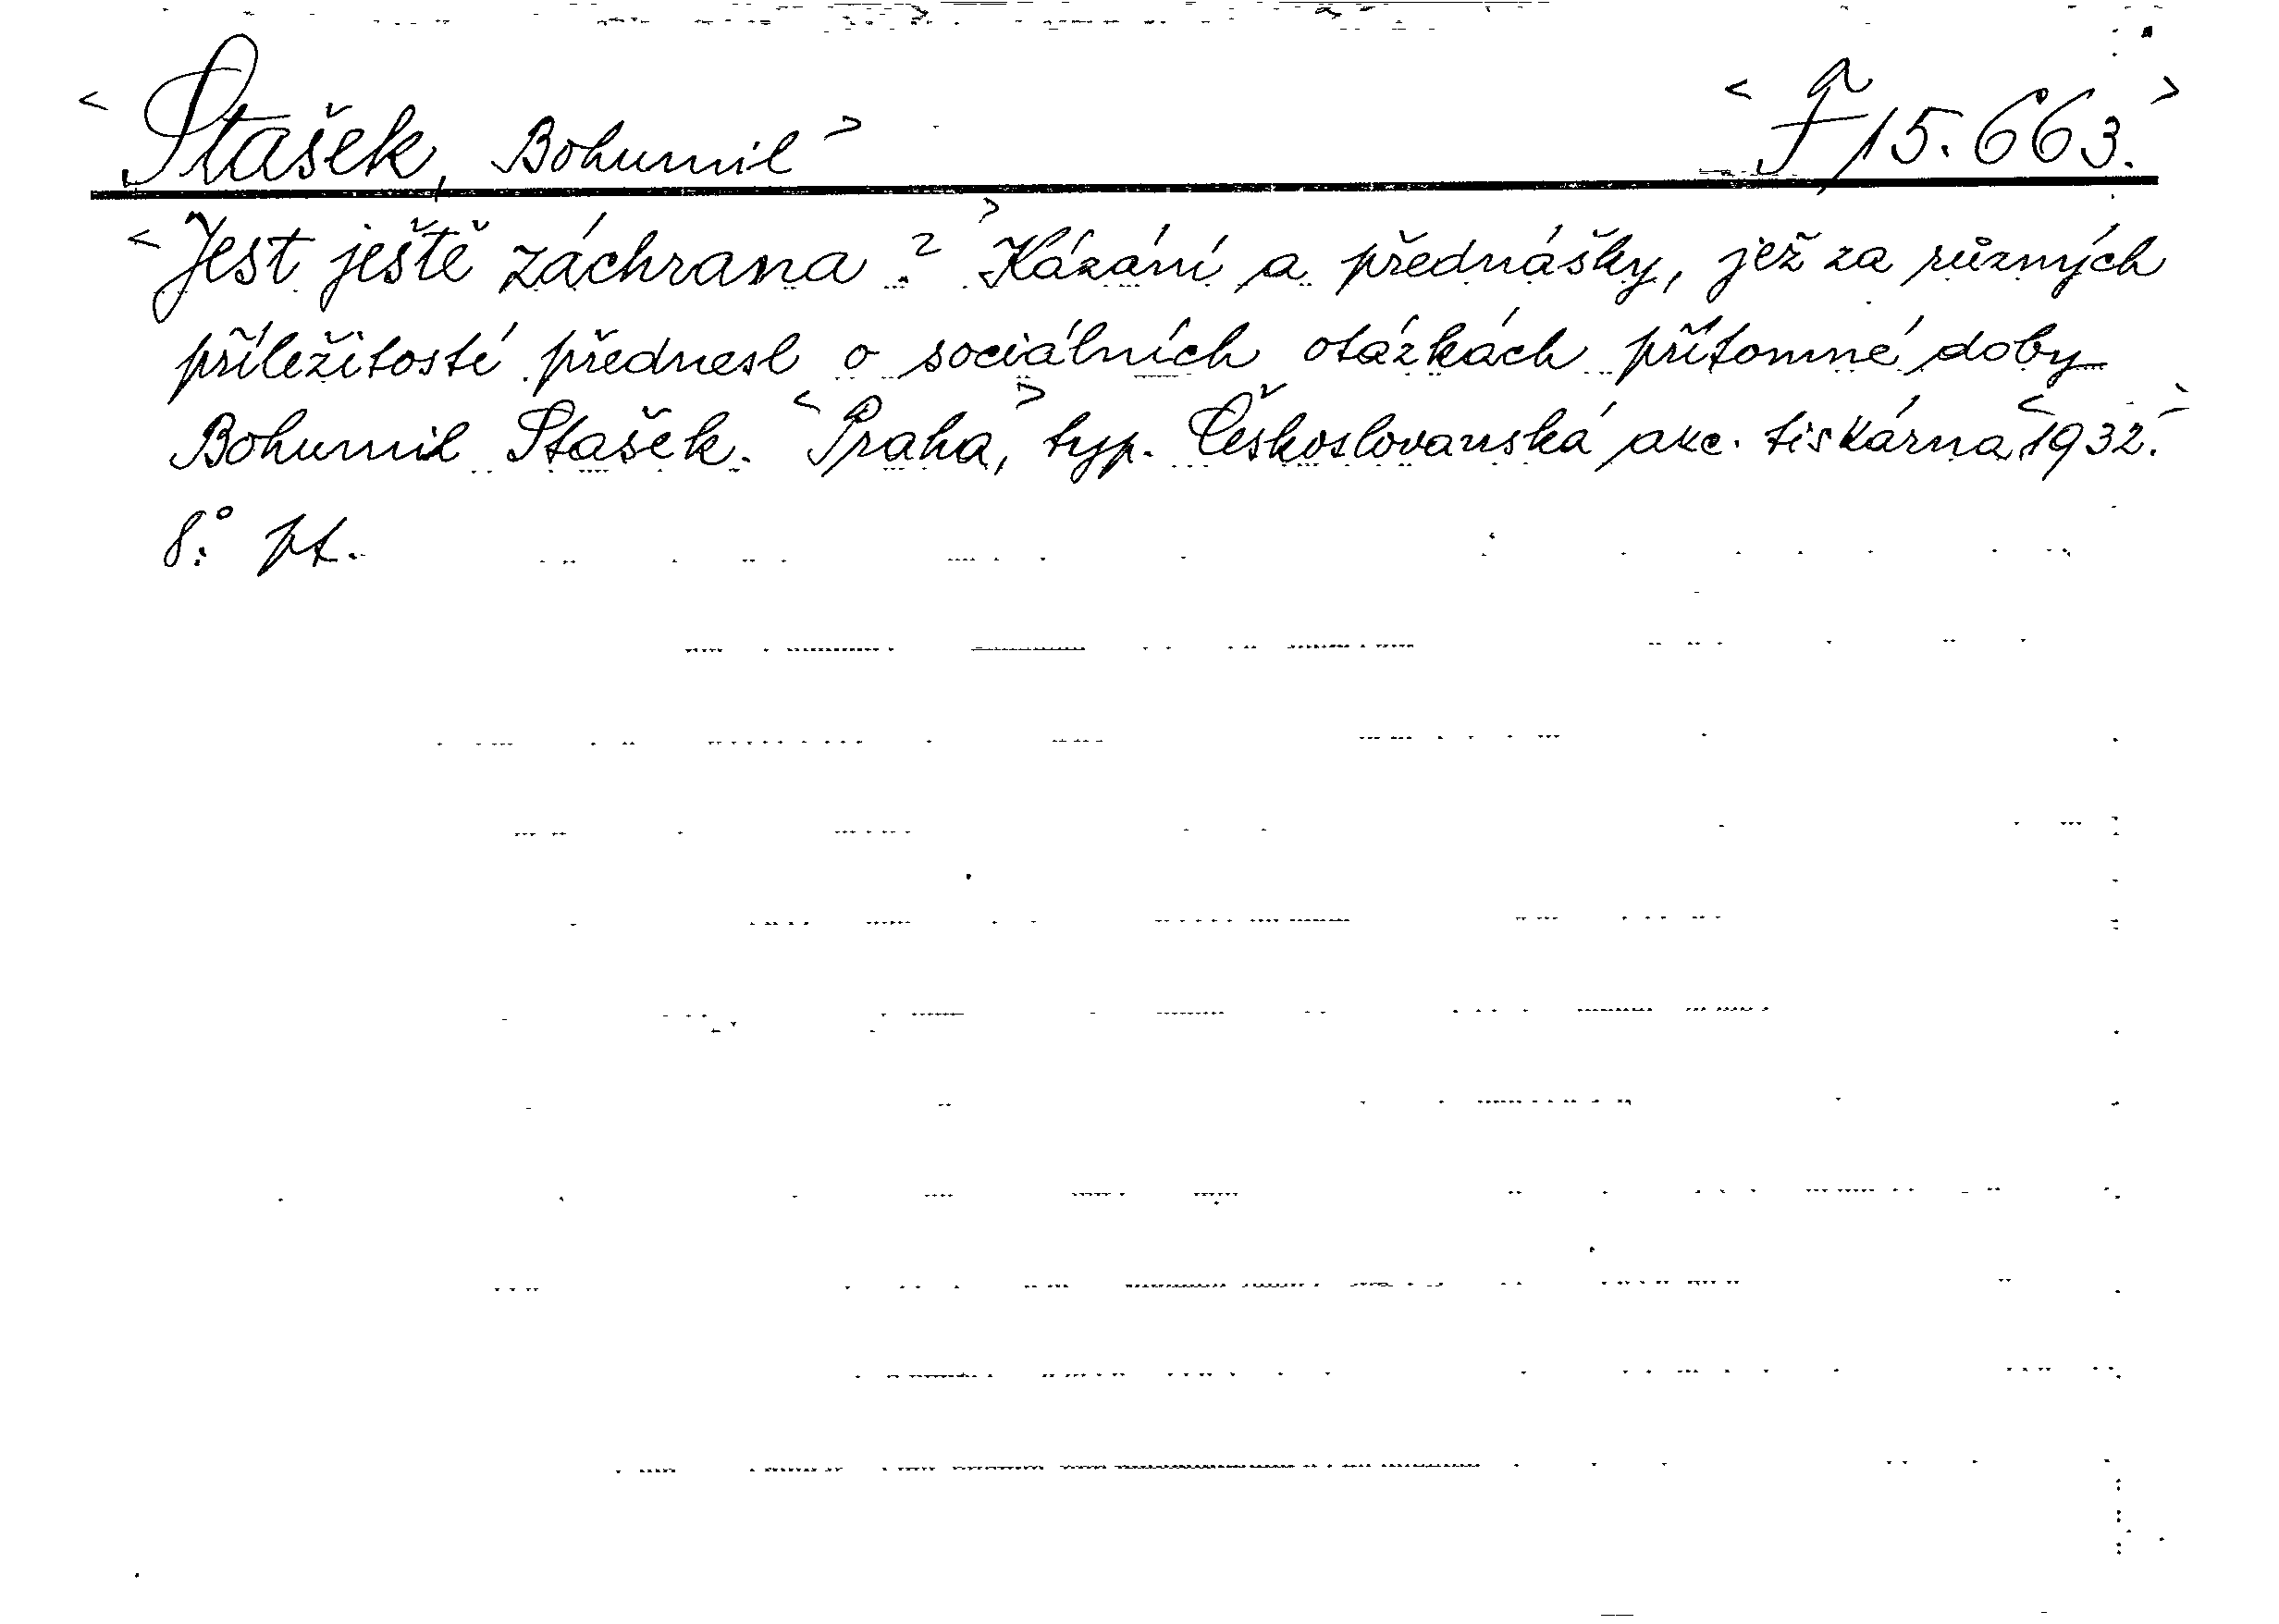 <Stašek, Bohumil> <F 15.663.>
<Jest ještě záchrana?> Kázání a přednášky, jež za různých
příležitostí přednesl o sociálních otázkách přítomné doby
Bohumil Stašek. <Praha,> typ. Českoslovanská akc. tiskárna <1932.>
8.° pt.